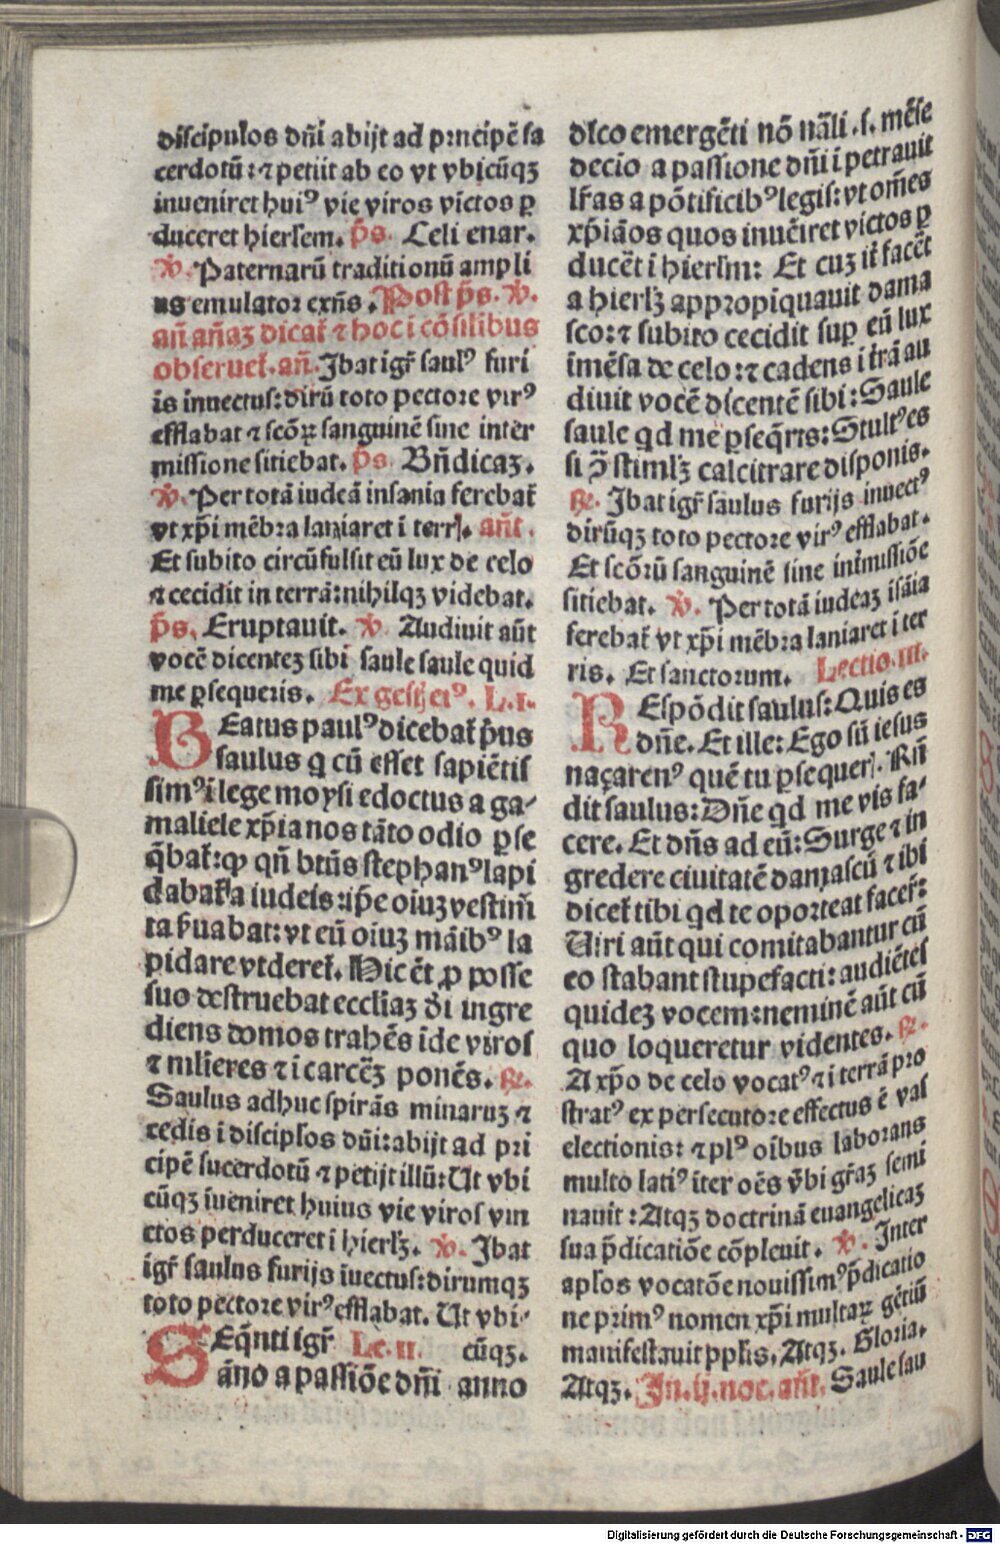 discipulos dñi abijt ad prncipē sa
cerdotū: ⁊ petiit ab eo vt vbicūqꝫ
inueniret huiꝰ vie viros vīctos ꝑ
duceret hierlem. p̄s. Celi enar.
℣. Paternarū traditionū ampli
us emulator exñs. Post p̄s. ℣.
añ añaꝫ dicat̄ ⁊ hoc i cōsilibus
obseruet̄. añ. Jbat igr̄ saulꝰ furi
is inuectus: dirū toto pectore virꝰ
efflabat ⁊ scōꝝ sanguinē sine inter
missione sitiebat. p̄s. Bñdicaꝫ.
℣. Per totā iudeā insania ferebat̄
vt xp̄i mēbra laniaret i terrꝭ. añt.
Et subito circūfulsit eū lux de celo
⁊ cecidit in terrā: nihilqꝫ videbat.
p̄s. Eruptauit. ℣. Audiuit aūt
vocē dicenteꝫ sibi saule saule quid
me ꝑsequeris. Ex gest̄ eiꝰ. L. I.
BEatus paulꝰ dicebat̄ p̄us
saulus q cū esset sapiētis
simꝰ i lege moysi edoctus a ga-
maliele xp̄ianos tāto odio ꝑse
q̄bat̄: ꝙ qñ btūs stephanꝰ lapi
dabat̄ a iudeis: ip̄e oiuꝫ vestim̄
ta s̄uabat: vt eū oiuꝫ māibꝰ la
pidare videret̄. Hic ēt ꝓ posse
suo destruebat eccliaꝫ d̄i ingre
diens domos trahēs īde viros
⁊ mlieres ⁊ i carcēꝫ ponēs. ℟.
Saulus adhuc spirās minaruꝫ ⁊
cedis i discipl̄os dn̄i: abijt ad pri
cipē sacerdotū ⁊ petijt illū: Ut vbi
cūqꝫ iueniret huius vie viros vin
ctos perduceret i hierlꝫ. ℣. Jbat
igr̄ saulus furijs iuectus: dirumqꝫ
toto pectore virꝰ efflabat. Ut vbi-
SEq̄nti igr̄ Lc. II. cūqꝫ.
āno a passiōe dn̄i anno
dīco emergēti nō nāli. s. mēse
decio a passione dn̄i i petrauit
lr̄as a pōtificibꝰ legis: vt om̄es
xp̄iāos quos inuēiret victos ꝑ
ducēt i hierlm: Et cuꝫ it̄ facēt
a hierlꝫ appropiquauit dama
sco: ⁊ subito cecidit suꝑ eū lux
imēsa de celo: ⁊ cadens i trā au
diuit vocē dicentē sibi: Saule
saule qd me ꝑseq̄ris: Stultꝰ es
si ꝯ̄ stimlꝫ calcitrare disponis.
℟. Jbat igr̄ saulus furijs inuectꝰ
dirūqꝫ toto pectore virꝰ efflabat.
Et scōrū sanguinē sine int̄missiōe
sitiebat. ℣. Per totā iudeaꝫ isāia
ferebat̄ vt xp̄i mēbra laniaret i ter
ris. Et sanctorum. Lectio. III.
REspōdit saulus: Quis es
dn̄e. Et ille: Ego sū iesus
naçarenꝰ quē tu ꝑsequerꝭ. Rn̄
dit saulus: Dn̄e qd me vis fa-
cere. Et dn̄s ad eū: Surge ⁊ in
gredere ciuitatē damascū ⁊ ibi
dicet̄ tibi qd te oporteat facer̄:
Uiri aūt qui comitabantur cū
eo stabant stupefacti: audiētes
quideꝫ vocem: neminē aūt cū
quo loqueretur videntes. ℟.
A xp̄o de celo vocatꝰ ⁊ i terrā pro
stratꝰ ex persecutore effectus ē vas
electionis: ⁊ plꝰ oībus laborans
multo latiꝰ iter oēs v̄bi gr̄aꝫ semi
nauit: Atqꝫ doctrinā euangelicaꝫ
sua p̄dicatiōe cōpleuit. ℣. Inter
apl̄os vocatōe nouissimꝰ p̄dicatio
ne primꝰ nomen xp̄i multaꝝ gētiū
manifestauit ppl̄is. Atqꝫ. Gloria.
Atqꝫ. In. ij. noc. añt. Saule sau
Digitalisierung gefördert durch die Deutsche Forschungsgemeinschaft - DFG